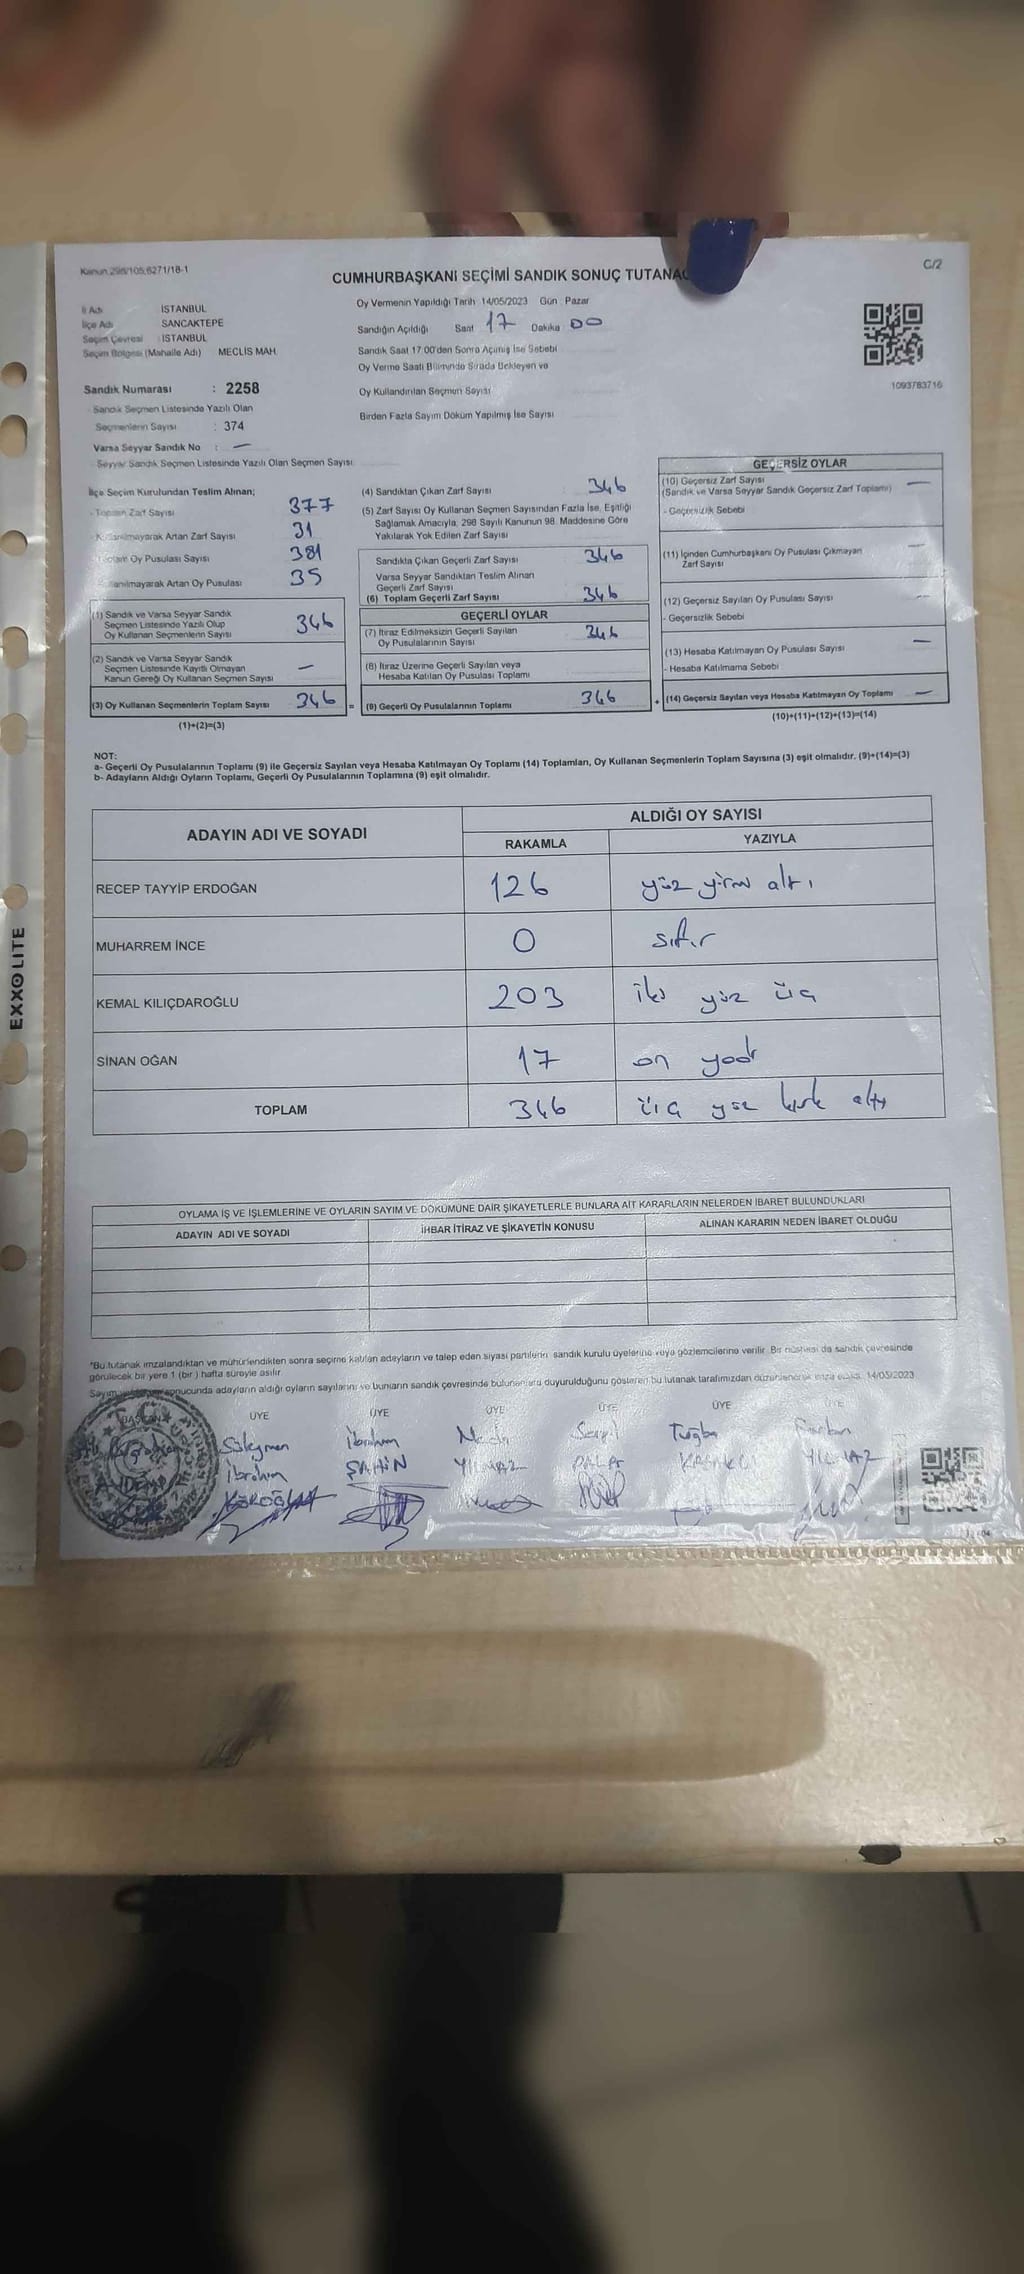 Kanun 298/105,6271/18-1
C/2
CUMHURBAŞKANI SEÇİMİ SANDIK SONUÇ TUTANA
İl Adı İSTANBUL
İlçe Adı SANCAKTEPE
Seçim Çevresi : İSTANBUL
Seçim Bölgesi (Mahalle Adı) MECLİS MAH.
Oy Vermenin Yapıldığı Tarih 14/05/2023 Gün Pazar
Sandığın Açıldığı Saat 17 Dakika 00
Sandık Saat 17:00'den Sonra Açılmış İse Sebebi
Oy Verme Saati Bitiminde Sırada Bekleyen ve
Oy Kullandırılan Seçmen Sayısı
Birden Fazla Sayım Döküm Yapılmış İse Sayısı
1093783716
Sandık Numarası : 2258
- Sandık Seçmen Listesinde Yazılı Olan
Seçmenlerin Sayısı : 374
Varsa Seyyar Sandık No : —
- Seyyar Sandık Seçmen Listesinde Yazılı Olan Seçmen Sayısı
İlçe Seçim Kurulundan Teslim Alınan;
- Toplam Zarf Sayısı 377
- Kullanılmayarak Artan Zarf Sayısı 31
Toplam Oy Pusulası Sayısı 381
Kullanılmayarak Artan Oy Pusulası 35
(1) Sandık ve Varsa Seyyar Sandık
Seçmen Listesinde Yazılı Olup
Oy Kullanan Seçmenlerin Sayısı 346
(2) Sandık ve Varsa Seyyar Sandık
Seçmen Listesinde Kayıtlı Olmayan
Kanun Gereği Oy Kullanan Seçmen Sayısı —
(3) Oy Kullanan Seçmenlerin Toplam Sayısı 346
(1)+(2)=(3)
(4) Sandıktan Çıkan Zarf Sayısı 346
(5) Zarf Sayısı Oy Kullanan Seçmen Sayısından Fazla İse, Eşitliği
Sağlamak Amacıyla, 298 Sayılı Kanunun 98. Maddesine Göre
Yakılarak Yok Edilen Zarf Sayısı
Sandıkta Çıkan Geçerli Zarf Sayısı 346
Varsa Seyyar Sandıktan Teslim Alınan
Geçerli Zarf Sayısı
(6) Toplam Geçerli Zarf Sayısı 346
GEÇERLİ OYLAR
(7) İtiraz Edilmeksizin Geçerli Sayılan
Oy Pusulalarının Sayısı 346
(8) İtiraz Üzerine Geçerli Sayılan veya
Hesaba Katılan Oy Pusulası Toplamı
= (9) Geçerli Oy Pusulalarının Toplamı 346
GEÇERSİZ OYLAR
(10) Geçersiz Zarf Sayısı
(Sandık ve Varsa Seyyar Sandık Geçersiz Zarf Toplamı) —
- Geçersizlik Sebebi
(11) İçinden Cumhurbaşkanı Oy Pusulası Çıkmayan
Zarf Sayısı —
(12) Geçersiz Sayılan Oy Pusulası Sayısı —
- Geçersizlik Sebebi
(13) Hesaba Katılmayan Oy Pusulası Sayısı —
- Hesaba Katılmama Sebebi
+ (14) Geçersiz Sayılan veya Hesaba Katılmayan Oy Toplamı —
(10)+(11)+(12)+(13)=(14)
NOT:
a- Geçerli Oy Pusulalarının Toplamı (9) ile Geçersiz Sayılan veya Hesaba Katılmayan Oy Toplamı (14) Toplamları, Oy Kullanan Seçmenlerin Toplam Sayısına (3) eşit olmalıdır. (9)+(14)=(3)
b- Adayların Aldığı Oyların Toplamı, Geçerli Oy Pusulalarının Toplamına (9) eşit olmalıdır.
ADAYIN ADI VE SOYADI
ALDIĞI OY SAYISI
RAKAMLA YAZIYLA
RECEP TAYYİP ERDOĞAN 126 yüz yirmi altı
MUHARREM İNCE 0 sıfır
KEMAL KILIÇDAROĞLU 203 iki yüz üç
SİNAN OĞAN 17 on yedi
TOPLAM 346 üç yüz kırk altı
OYLAMA İŞ VE İŞLEMLERİNE VE OYLARIN SAYIM VE DÖKÜMÜNE DAİR ŞİKAYETLERLE BUNLARA AİT KARARLARIN NELERDEN İBARET BULUNDUKLARI
ADAYIN ADI VE SOYADI İHBAR İTİRAZ VE ŞİKAYETİN KONUSU ALINAN KARARIN NEDEN İBARET OLDUĞU
*Bu tutanak imzalandıktan ve mühürlendikten sonra seçime katılan adayların ve talep eden siyasi partilerin sandık kurulu üyelerine veya gözlemcilerine verilir. Bir nüshası da sandık çevresinde
görülecek bir yere 1 (bir) hafta süreyle asılır.
Sayım sonucunda adayların aldığı oyların sayılarını ve bunların sandık çevresinde bulunanlara duyurulduğunu gösteren bu tutanak tarafımızdan düzenlenerek imza edildi. 14/05/2023
BAŞKAN ÜYE ÜYE ÜYE ÜYE ÜYE
Süleyman İbrahim Serpil Tuğba
İbrahim ŞAHİN YILMAZ YILMAZ
KÖROĞLU
EXXOLITE